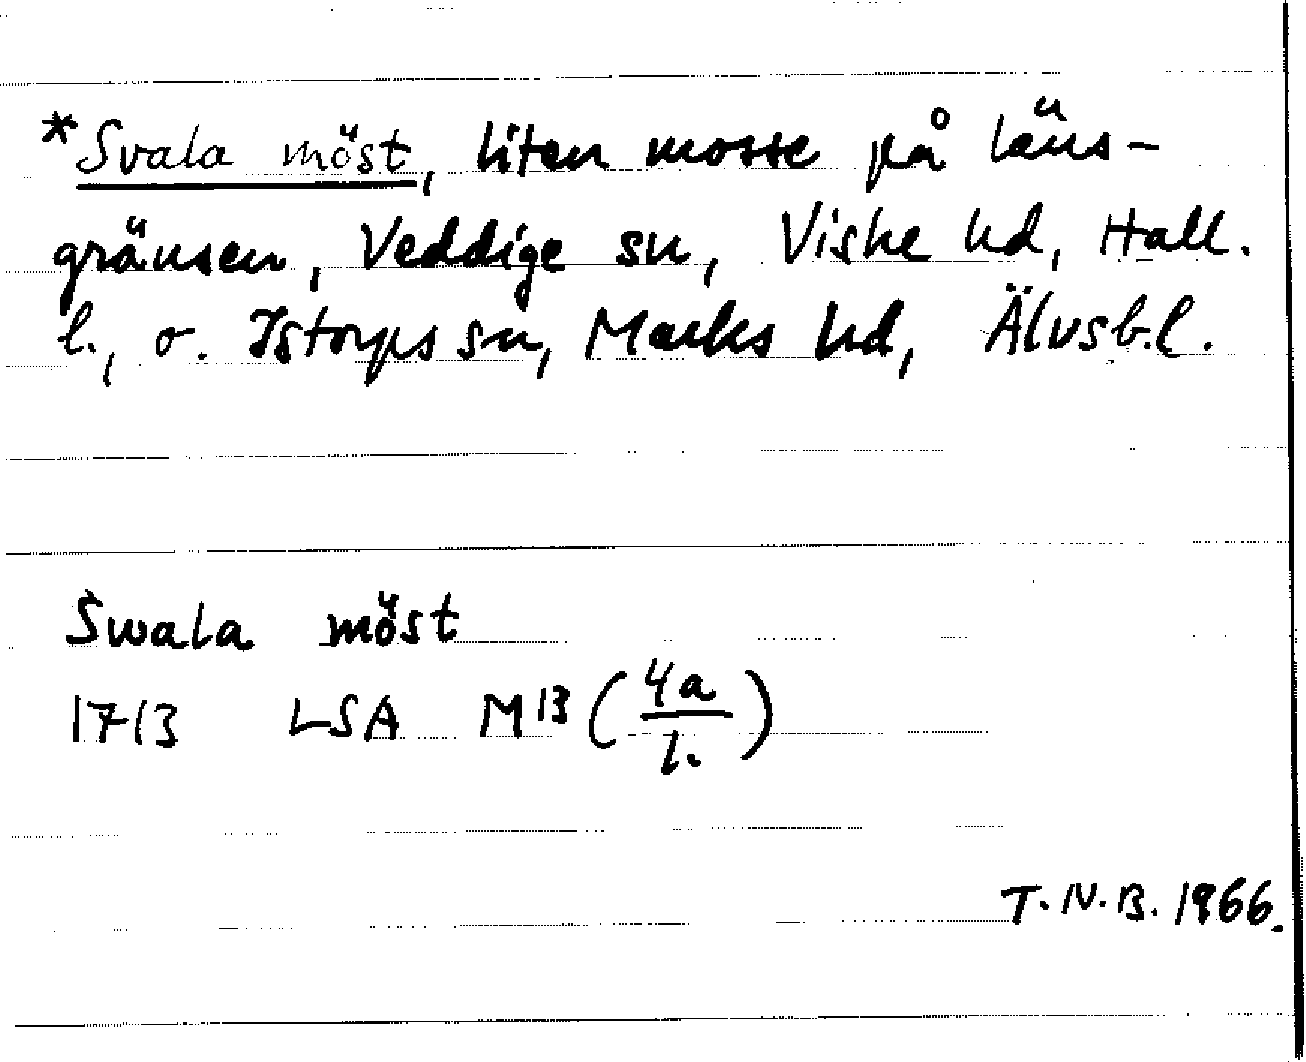 *Svala möst, liten mosse på läns-
gränsen, Veddige sn, Viske hd, Hall.
l., o. Istorps sn, Marks hd, Älvsb.l.
Swala möst
1713 LSA M13 (4a/1.)
T.N.B. 1966.